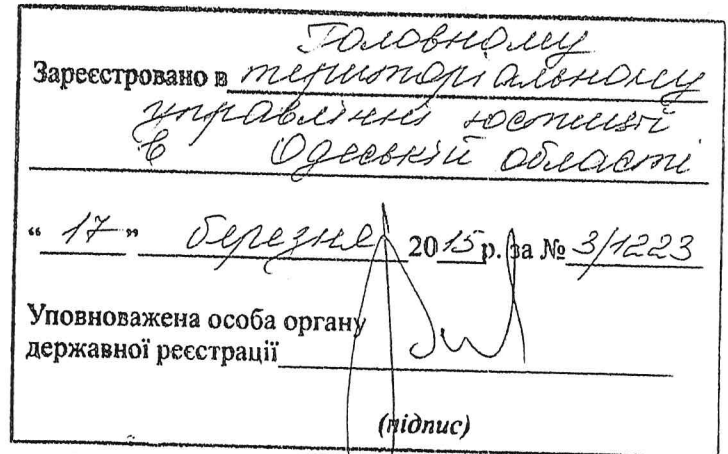 Головному
Зареєстровано в територіальному
управлінні юстиції
в Одеській області
“ 17 ” березня 2015 р. за № 3/1223
Уповноважена особа органу
державної реєстрації
(підпис)